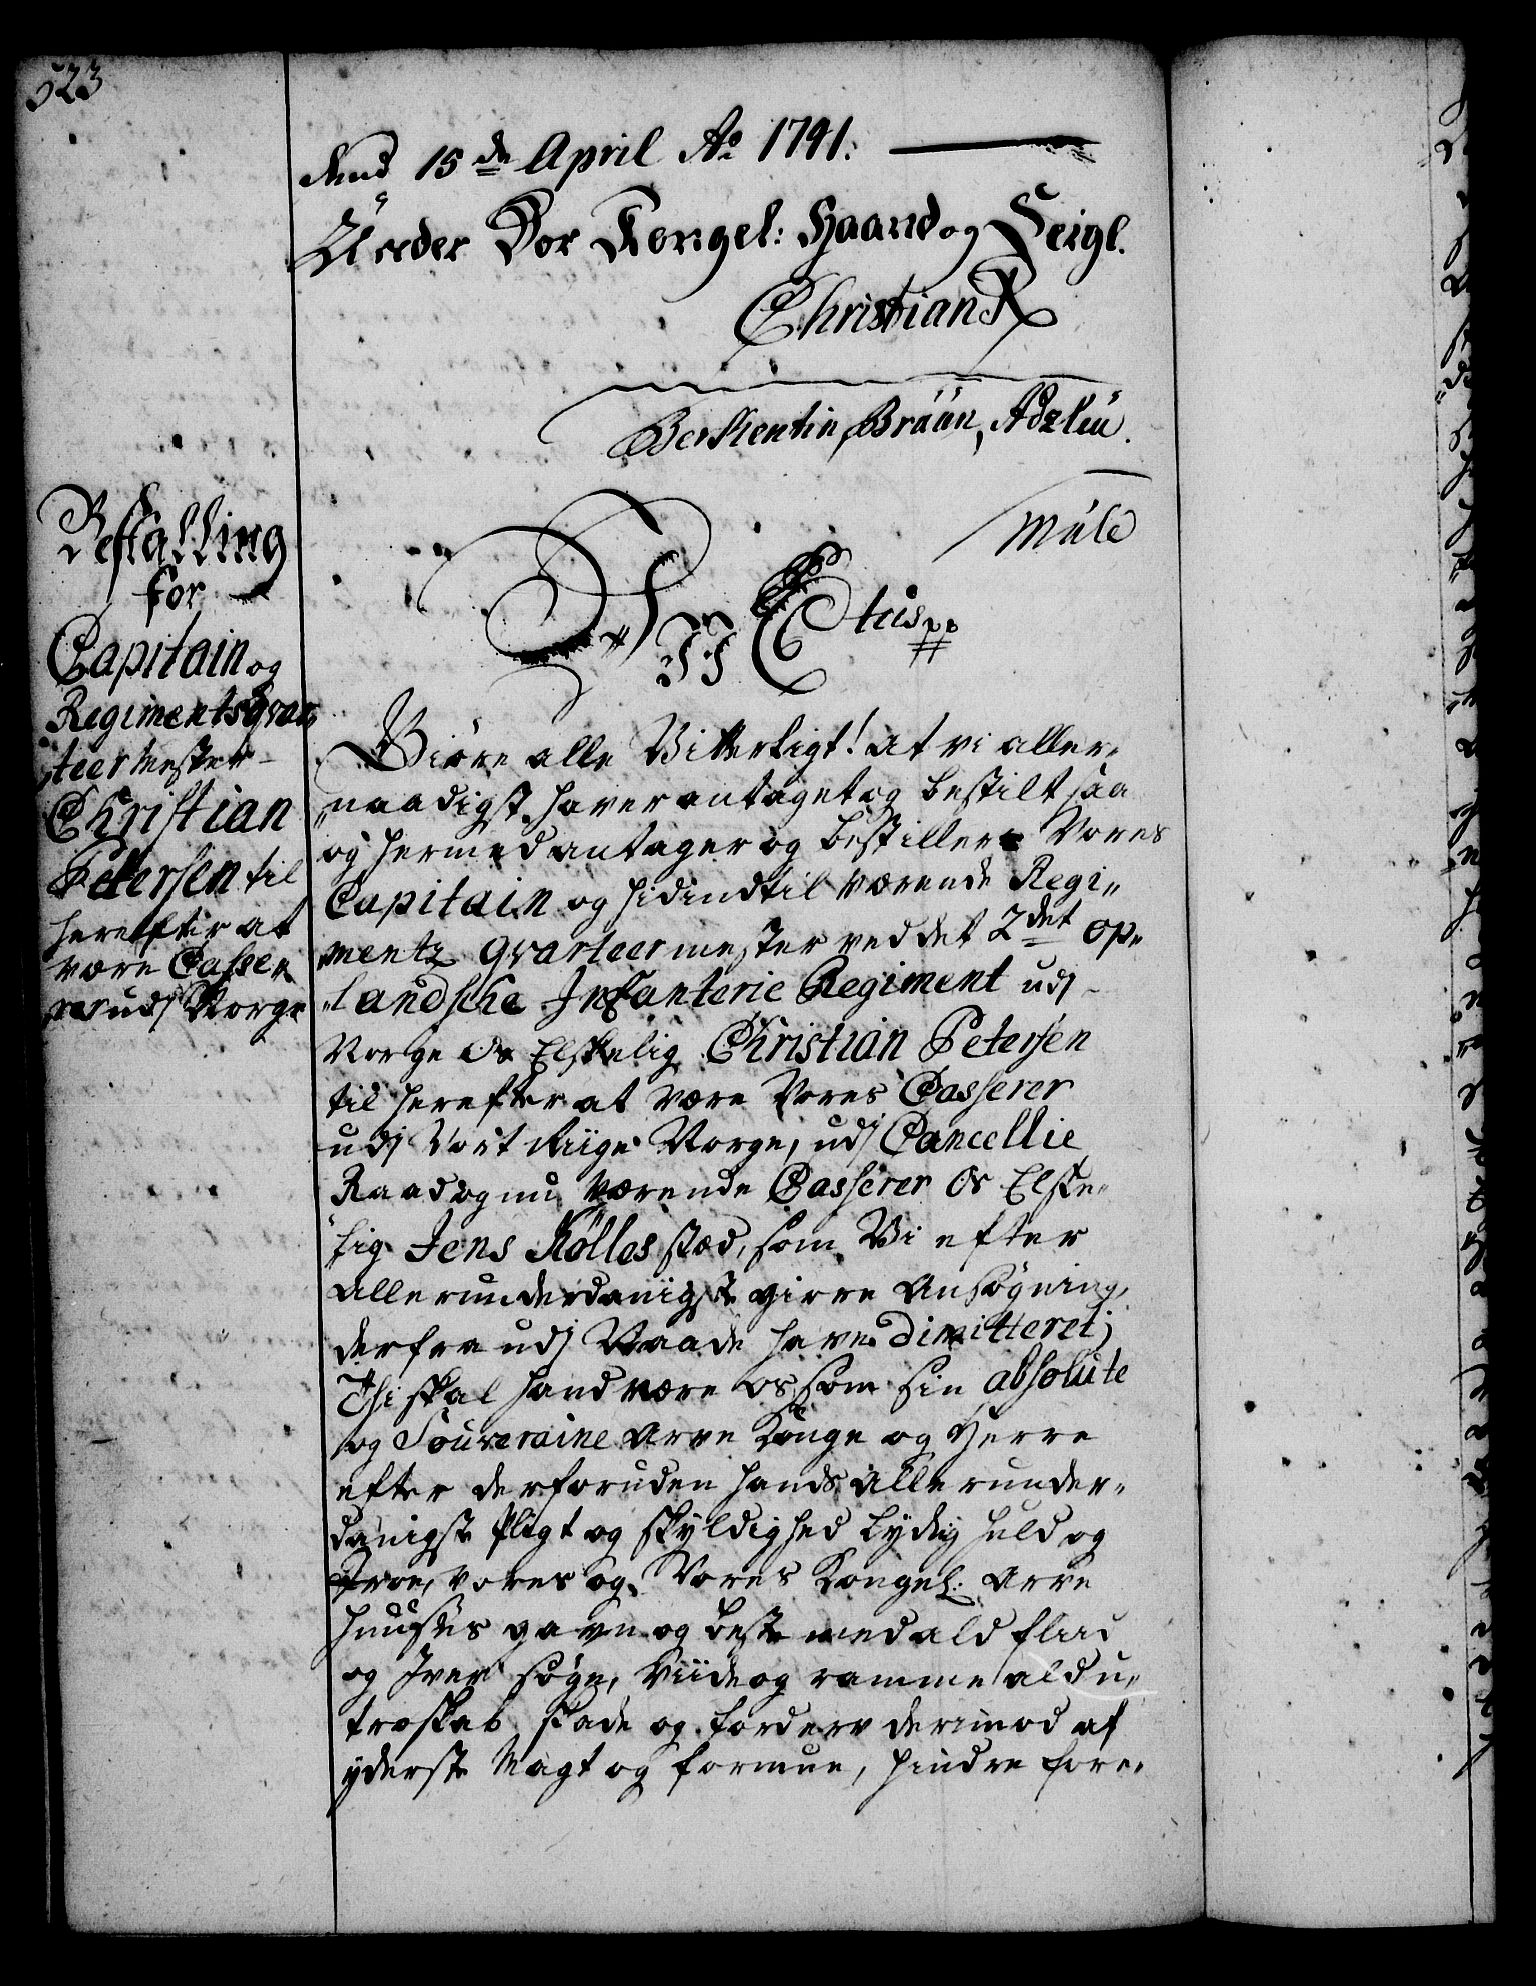 523
dend 15de April Ao 1741.
Under Vor Kongel: Haand og Seigl.
Christian R
Berkentin, Braün, Adzleü.
Müle
Bestalling
for
Capitain og
Regimentsqvar
teermester
Christian
Petersen til
herefter at
være Casse„
rer udj Norge
Wi C6tus pp
Giøre alle Vitterligt! at vi aller„
„naadigst haver antaget og bestilt saa
og hermed antager og bestiller Vores
Capitain og hidindtil værende Regi„
mentz Qvarteermester ved det 2det Op„
„landsche Infanterie Regiment udj
Norge Os Elskelig Christian Petersen
til herefter at være Vores Casserer
udj Vort Riige Norge, udj Cancellie
Raad og nu værende Casserer Os Elske„
lig Jens Kølles stæd, som Vi efter
allerunderdanigste giorte Ansøgning,
derfra udj Naade have dimitteret;
Thi skal hand være os som sin absolute
og Souveraine Arve Konge og Herre
efter derforuden hands allerunder„
danigste Pligt og skyldighed lydig huld og
troe, vores og Vores Kongel: Arve
Huuses gavn og beste med ald fliid
og Iver søge, viide og ramme ald u„
troskab, skade og forderv derimod af
yderste Magt og formue, hindre fore„